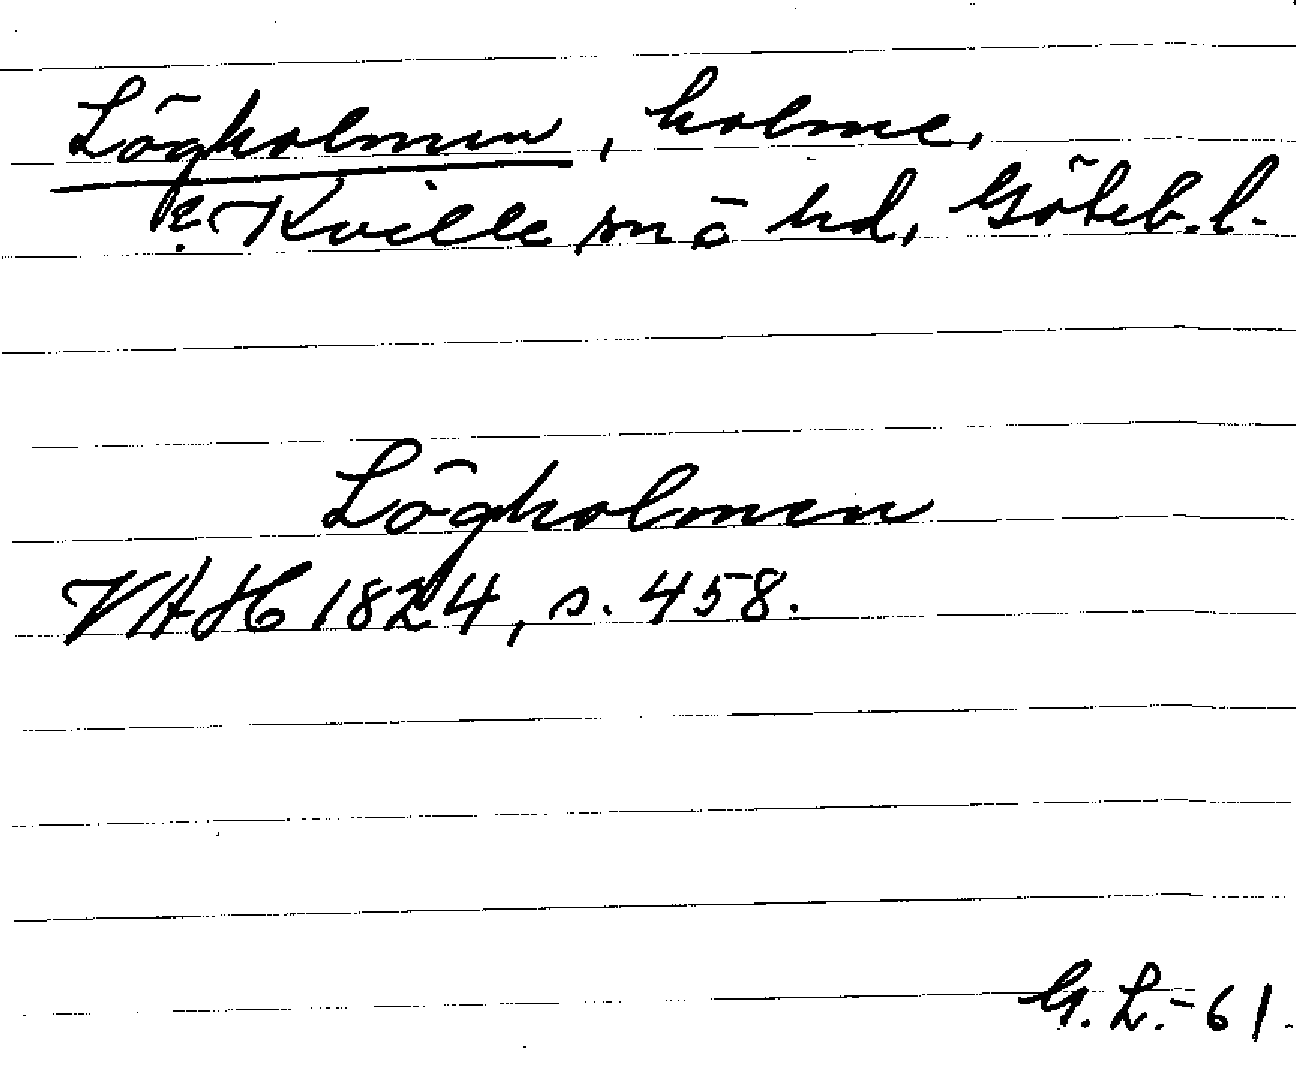 Lögholmen, holme,
? Kville sn o hd, Göteb. l.
Lögholmen
VAH 1824, s. 458.
G. L. -61.